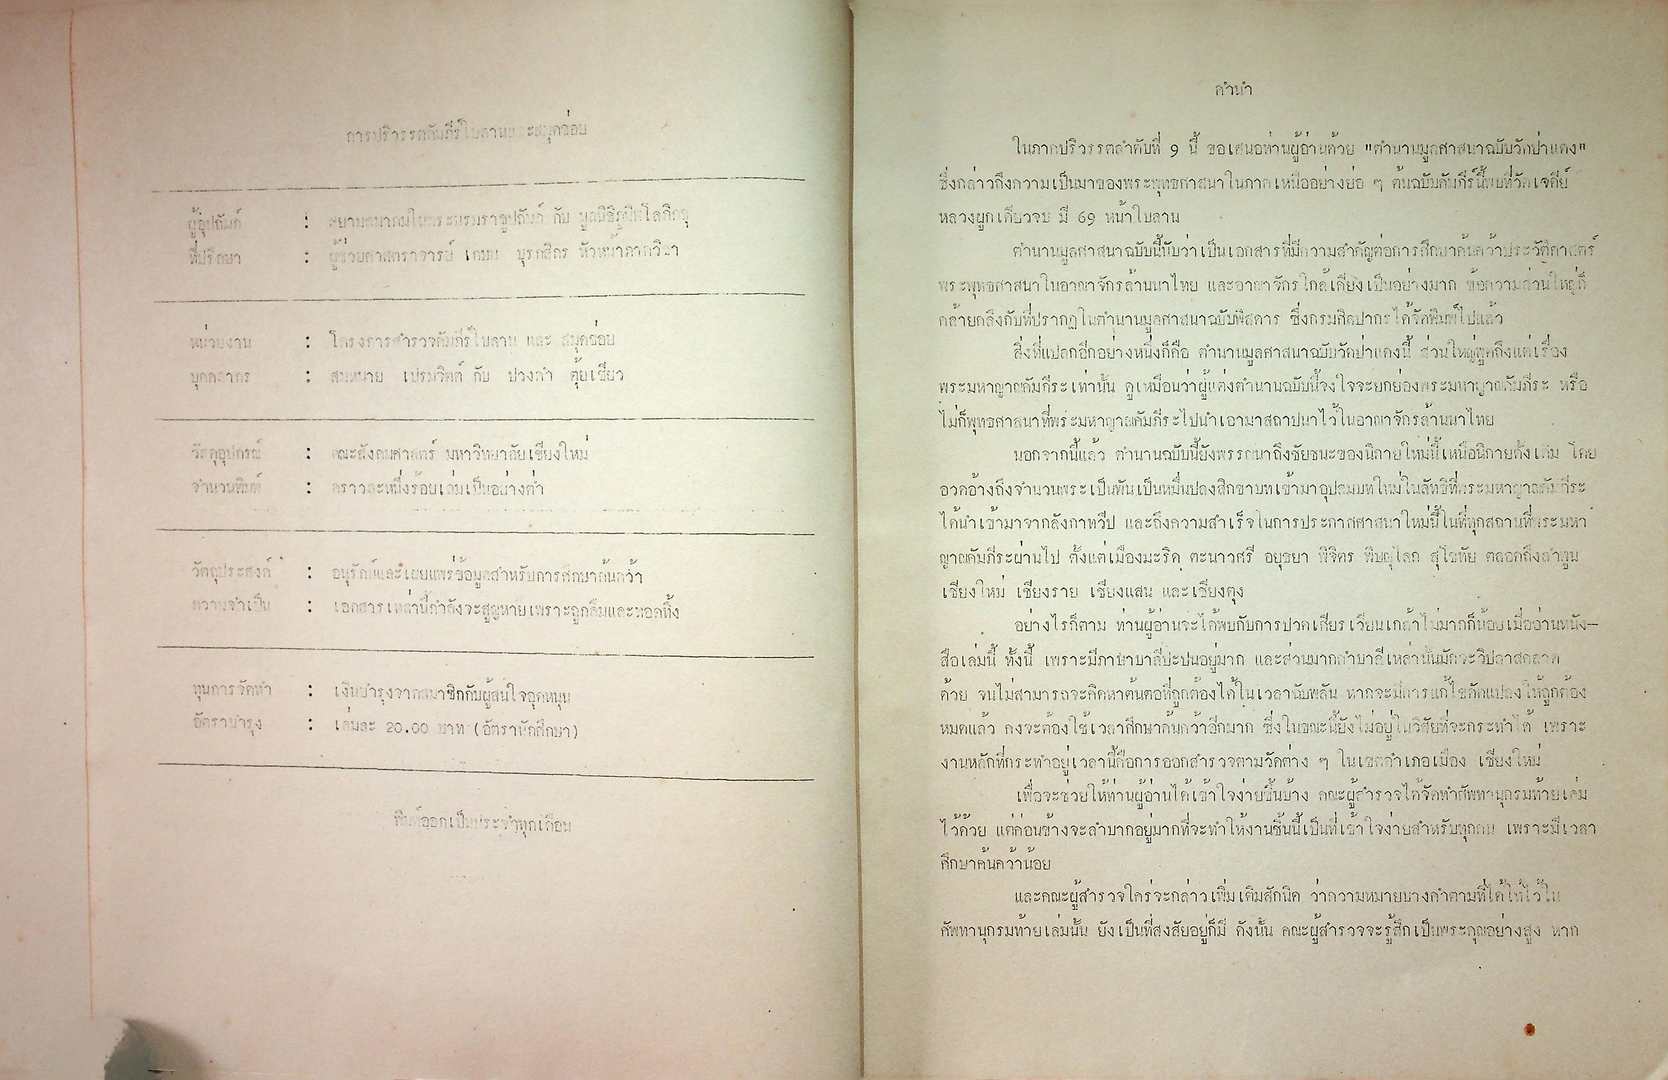 การปริวรรตคัมภีร์ใบลานและสมุดข่อย
ผู้อุปถัมภ์ : สยามสมาคมในพระบรมราชูปถัมภ์ กับ มูลนิธิ
ที่ปรึกษา : ผู้ช่วยศาสตราจารย์ เกษม บุรกสิกร หัวหน้าภาควิชา
หน่วยงาน : โครงการสำรวจคัมภีร์ใบลาน และ สมุดข่อย
บุคคลากร : สมหมาย เปรมจิตต์ กับ ปวงคำ ตุ้ยเขียว
วัสดุอุปกรณ์ : คณะสังคมศาสตร์ มหาวิทยาลัยเชียงใหม่
จำนวนพิมพ์ : คราวละหนึ่งร้อยเล่มเป็นอย่างต่ำ
วัตถุประสงค์ : อนุรักษ์และเผยแพร่ข้อมูลสำหรับการศึกษาค้นคว้า
ความจำเป็น : เอกสารเหล่านี้กำลังจะสูญหายเพราะถูกลืมและทอดทิ้ง
ทุนการจัดทำ : เงินบำรุงจากสมาชิกกับผู้สนใจอุดหนุน
อัตราบำรุง : เล่มละ 20.00 บาท (อัตรานักศึกษา)
พิมพ์ออกเป็นประจำทุกเดือน
คำนำ
ในภาคปริวรรตลำดับที่ 9 นี้ ขอเสนอท่านผู้อ่านด้วย "ตำนานมูลศาสนาฉบับวัดป่าแดง"
ซึ่งกล่าวถึงความเป็นมาของพระพุทธศาสนาในภาคเหนืออย่างย่อ ๆ ต้นฉบับคัมภีร์นี้พบที่วัดเจดีย์
หลวงผูกเดียวจบ มี 69 หน้าใบลาน
ตำนานมูลศาสนาฉบับนี้นับว่าเป็นเอกสารที่มีความสำคัญต่อการศึกษาค้นคว้าประวัติศาสตร์
พระพุทธศาสนาในอาณาจักรล้านนาไทย และอาณาจักรใกล้เคียงเป็นอย่างมาก ข้อความส่วนใหญ่ก็
คล้ายคลึงกับที่ปรากฏในตำนานมูลศาสนาฉบับพิสดาร ซึ่งกรมศิลปากรได้จัดพิมพ์ไปแล้ว
สิ่งที่แปลกอีกอย่างหนึ่งก็คือ ตำนานมูลศาสนาฉบับวัดป่าแดงนี้ ส่วนใหญ่พูดถึงแต่เรื่อง
พระมหาญาณคัมภีระเท่านั้น ดูเหมือนว่าผู้แต่งตำนานฉบับนี้จงใจจะยกย่องพระมหาญาณคัมภีระ หรือ
ไม่ก็พุทธศาสนาที่พระมหาญาณคัมภีระไปนำเอามาสถาปนาไว้ในอาณาจักรล้านนาไทย
นอกจากนี้แล้ว ตำนานฉบับนี้ยังพรรณนาถึงชัยชนะของนิกายใหม่นี้เหนือนิกายดั้งเดิม โดย
อวดอ้างถึงจำนวนพระเป็นพันเป็นหมื่นปลงสิกขาบทเข้ามาอุปสมบทใหม่ในลัทธิที่พระมหาญาณคัมภีระ
ได้นำเข้ามาจากลังกาทวีป และถึงความสำเร็จในการประกาศศาสนาใหม่นี้ในที่ทุกสถานที่พระมหา
ญาณคัมภีระผ่านไป ตั้งแต่เมืองมะริด ตะนาวศรี อยุธยา พิจิตร พิษณุโลก สุโขทัย ตลอดถึงลำพูน
เชียงใหม่ เชียงราย เชียงแสน และเชียงตุง
อย่างไรก็ตาม ท่านผู้อ่านจะได้พบกับการปวดเศียรเวียนเกล้าไม่มากก็น้อยเมื่ออ่านหนัง-
สือเล่มนี้ ทั้งนี้ เพราะมีภาษาบาลีปะปนอยู่มาก และส่วนมากคำบาลีเหล่านั้นมักจะวิปลาสคลาด
ด้วย จนไม่สามารถจะคิดหาต้นตอที่ถูกต้องได้ในเวลาฉับพลัน หากจะมีการแก้ไขดัดแปลงให้ถูกต้อง
หมดแล้ว คงจะต้องใช้เวลาศึกษาค้นคว้าอีกมาก ซึ่งในขณะนี้ยังไม่อยู่ในวิสัยที่จะกระทำได้ เพราะ
งานหลักที่กระทำอยู่เวลานี้คือการออกสำรวจตามวัดต่าง ๆ ในเขตอำเภอเมือง เชียงใหม่
เพื่อจะช่วยให้ท่านผู้อ่านได้เข้าใจง่ายขึ้นบ้าง คณะผู้สำรวจได้จัดทำศัพทานุกรมท้ายเล่ม
ไว้ด้วย แต่ก่อนข้างจะลำบากอยู่มากที่จะทำให้งานชิ้นนี้เป็นที่เข้าใจง่ายสำหรับทุกคน เพราะมีเวลา
ศึกษาค้นคว้าน้อย
และคณะผู้สำรวจใคร่จะกล่าวเพิ่มเติมสักนิด ว่าความหมายบางคำตามที่ได้ให้ไว้ใน
ศัพทานุกรมท้ายเล่มนั้น ยังเป็นที่สงสัยอยู่ก็มี ดังนั้น คณะผู้สำรวจจะรู้สึกเป็นพระคุณอย่างสูง หาก